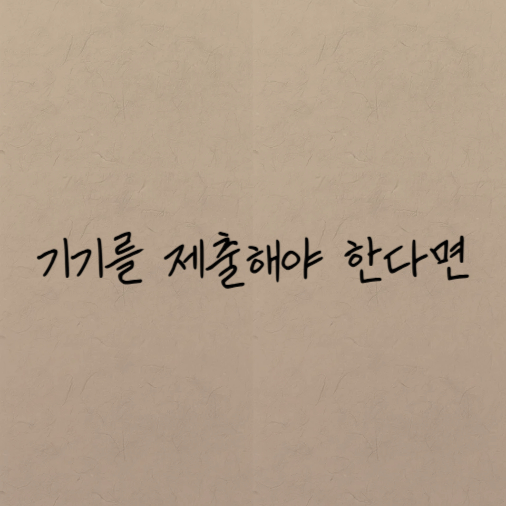 기기를 제출해야 한다면